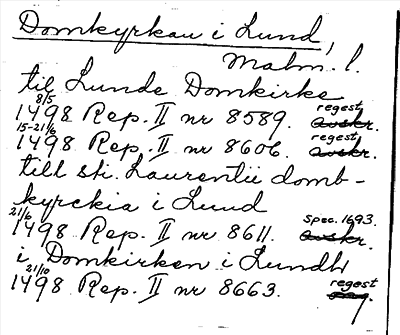 Domkyrkan i Lund,
Malm. l.
til Lunde Domkirke
8/5 regest
1498 Rep. II nr 8589. avskr.
15-21/6 regest
1498 Rep. II nr 8606. avskr.
till sti. Laurentii domb-
kyrckia i Lund
21/6 spec. 1693.
1498 Rep. II nr 8611. avskr.
i Domkirken i Lundh
21/10 regest
1498 Rep. II nr 8663.